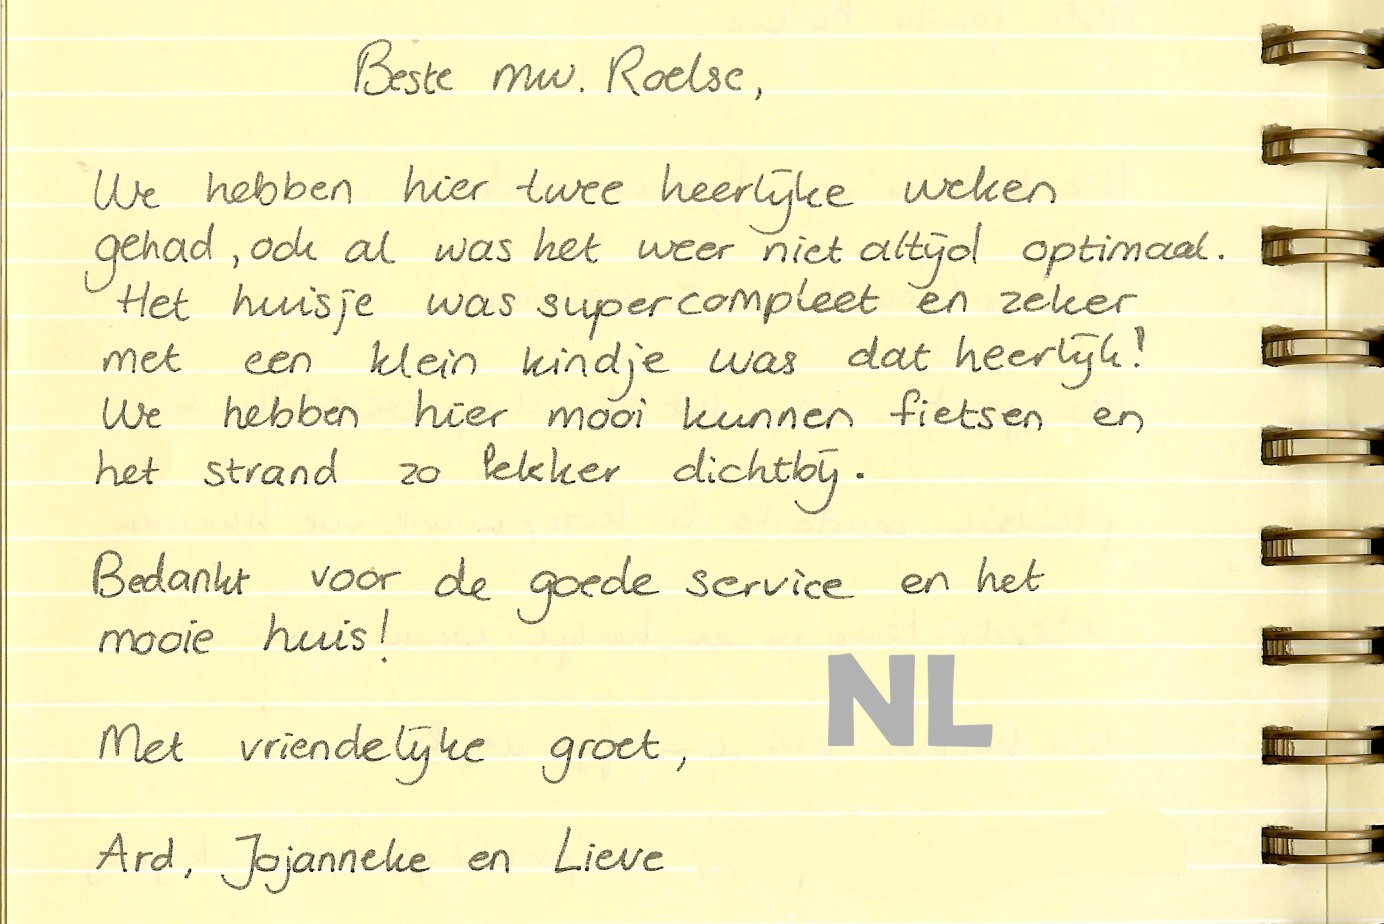 Beste mw. Roelse,
We hebben hier twee heerlijke weken
gehad, ook al was het weer niet altijd optimaal.
Het huisje was supercompleet en zeker
met een klein kindje was dat heerlijk!
We hebben hier mooi kunnen fietsen en
het strand zo lekker dichtbij.
Bedankt voor de goede service en het
mooie huis!
NL
Met vriendelijke groet,
Ard, Jojanneke en Lieve